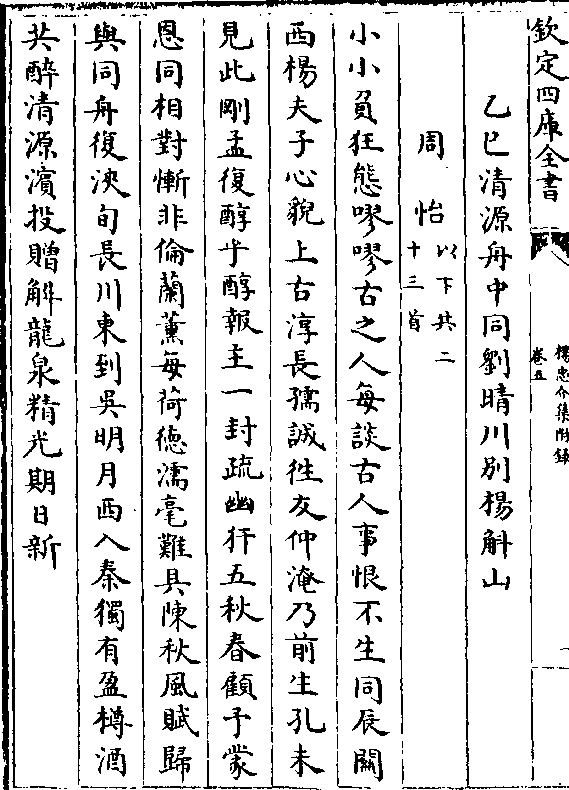 欽定四庫全書
楊忠介集附録
卷五
乙巳清源舟中同劉晴川别楊斛山
周怡以下共二十三首
小小負狂態嘐嘐古之人每談古人事恨不生同辰關
西楊夫子心貌上古淳長孺誠徃友仲淹乃前生孔未
見此剛孟復醇乎醇報主一封疏幽犴五秋春顧予蒙
恩同相對慚非倫蘭薰每荷德濡毫難具陳秋風賦歸
與同舟復浹旬長川東到吳明月西入秦獨有盈樽酒
共醉清源濱投贈解龍泉精光期日新